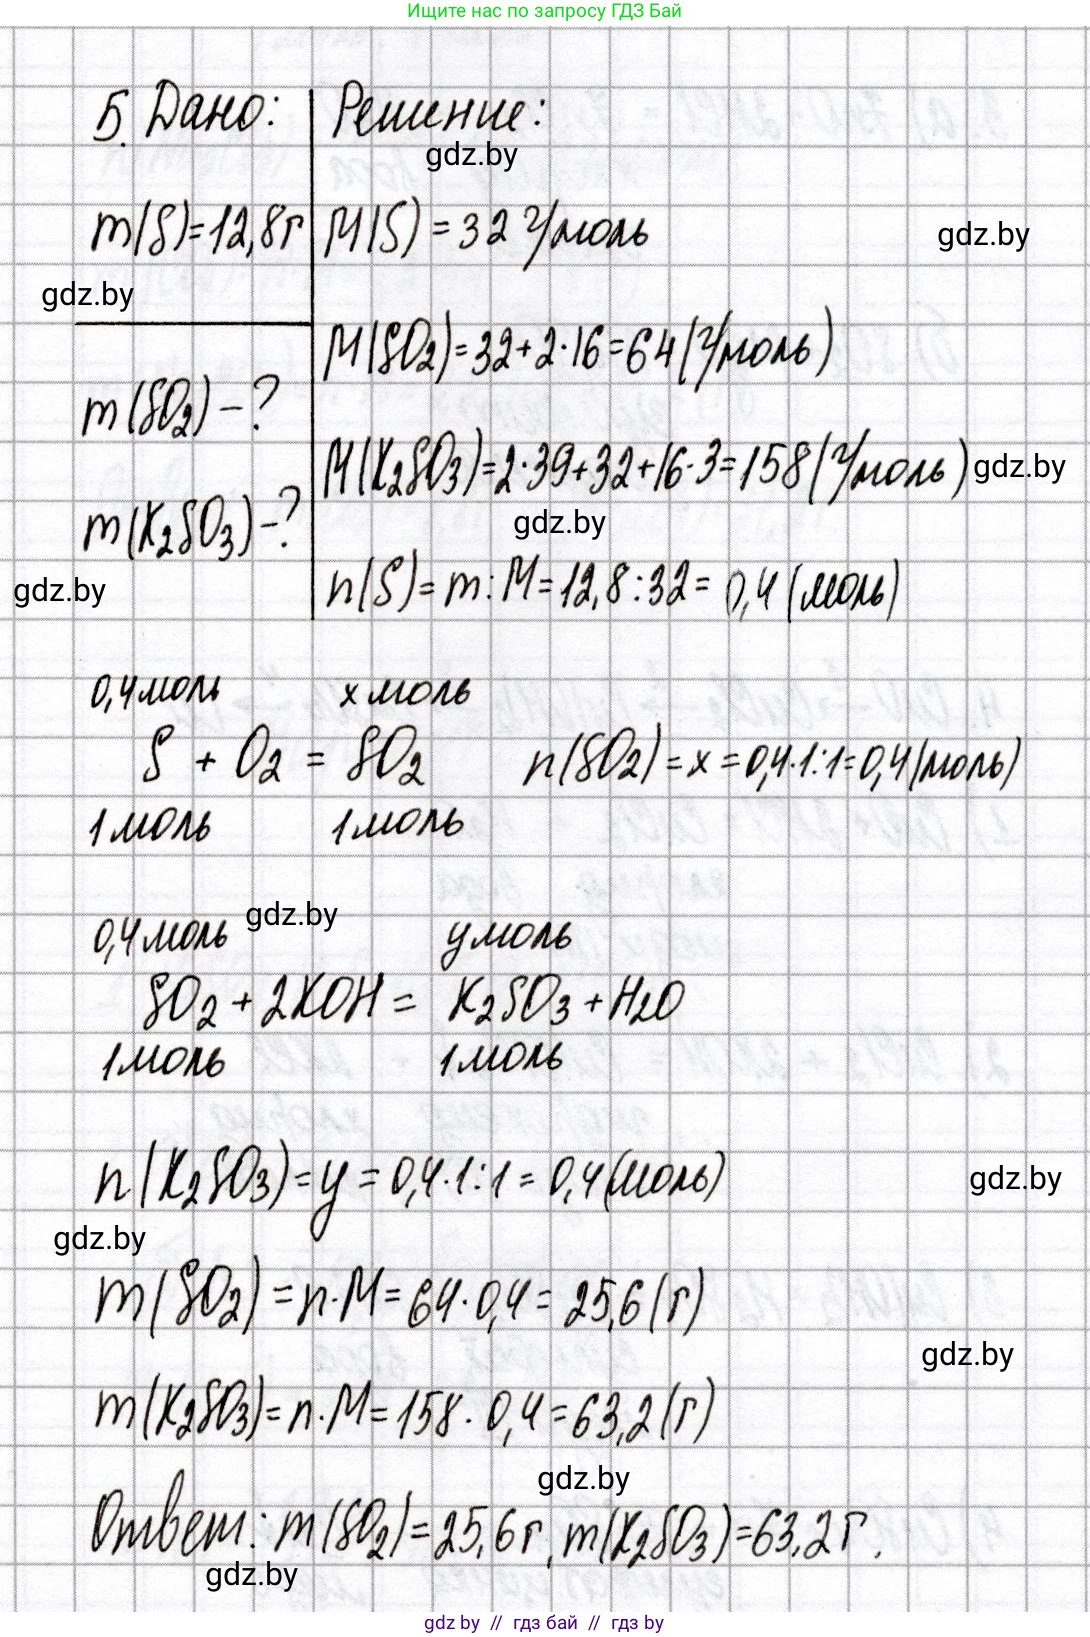 Ищите нас по запросу ГДЗ Бай
5. Дано: Решение:
gdz.by
m(S)=12,8г M(S) = 32 г/моль
gdz.by
gdz.by
M(SO2)=32+2·16=64(г/моль)
m(SO2)-?
M(K2SO3)=2·39+32+16·3=158(г/моль)
gdz.by
gdz.by
m(K2SO3)-?
gdz.by
n(S)=m:M=12,8:32= 0,4(моль)
0,4моль х моль
S + O2 = SO2 n(SO2)=x=0,4·1:1=0,4(моль)
1моль 1моль
gdz.by
0,4моль у моль
SO2+2KOH= K2SO3+H2O
1моль 1моль
n(K2SO3)=y=0,4·1:1=0,4(моль)
gdz.by
gdz.by
m(SO2)=n·M=64·0,4=25,6(г)
gdz.by
m(K2SO3)=n·M=158·0,4=63,2(г)
gdz.by
Ответ: m(SO2)=25,6г, m(K2SO3)=63,2г.
gdz.by
gdz by // гдз бай // гдз by